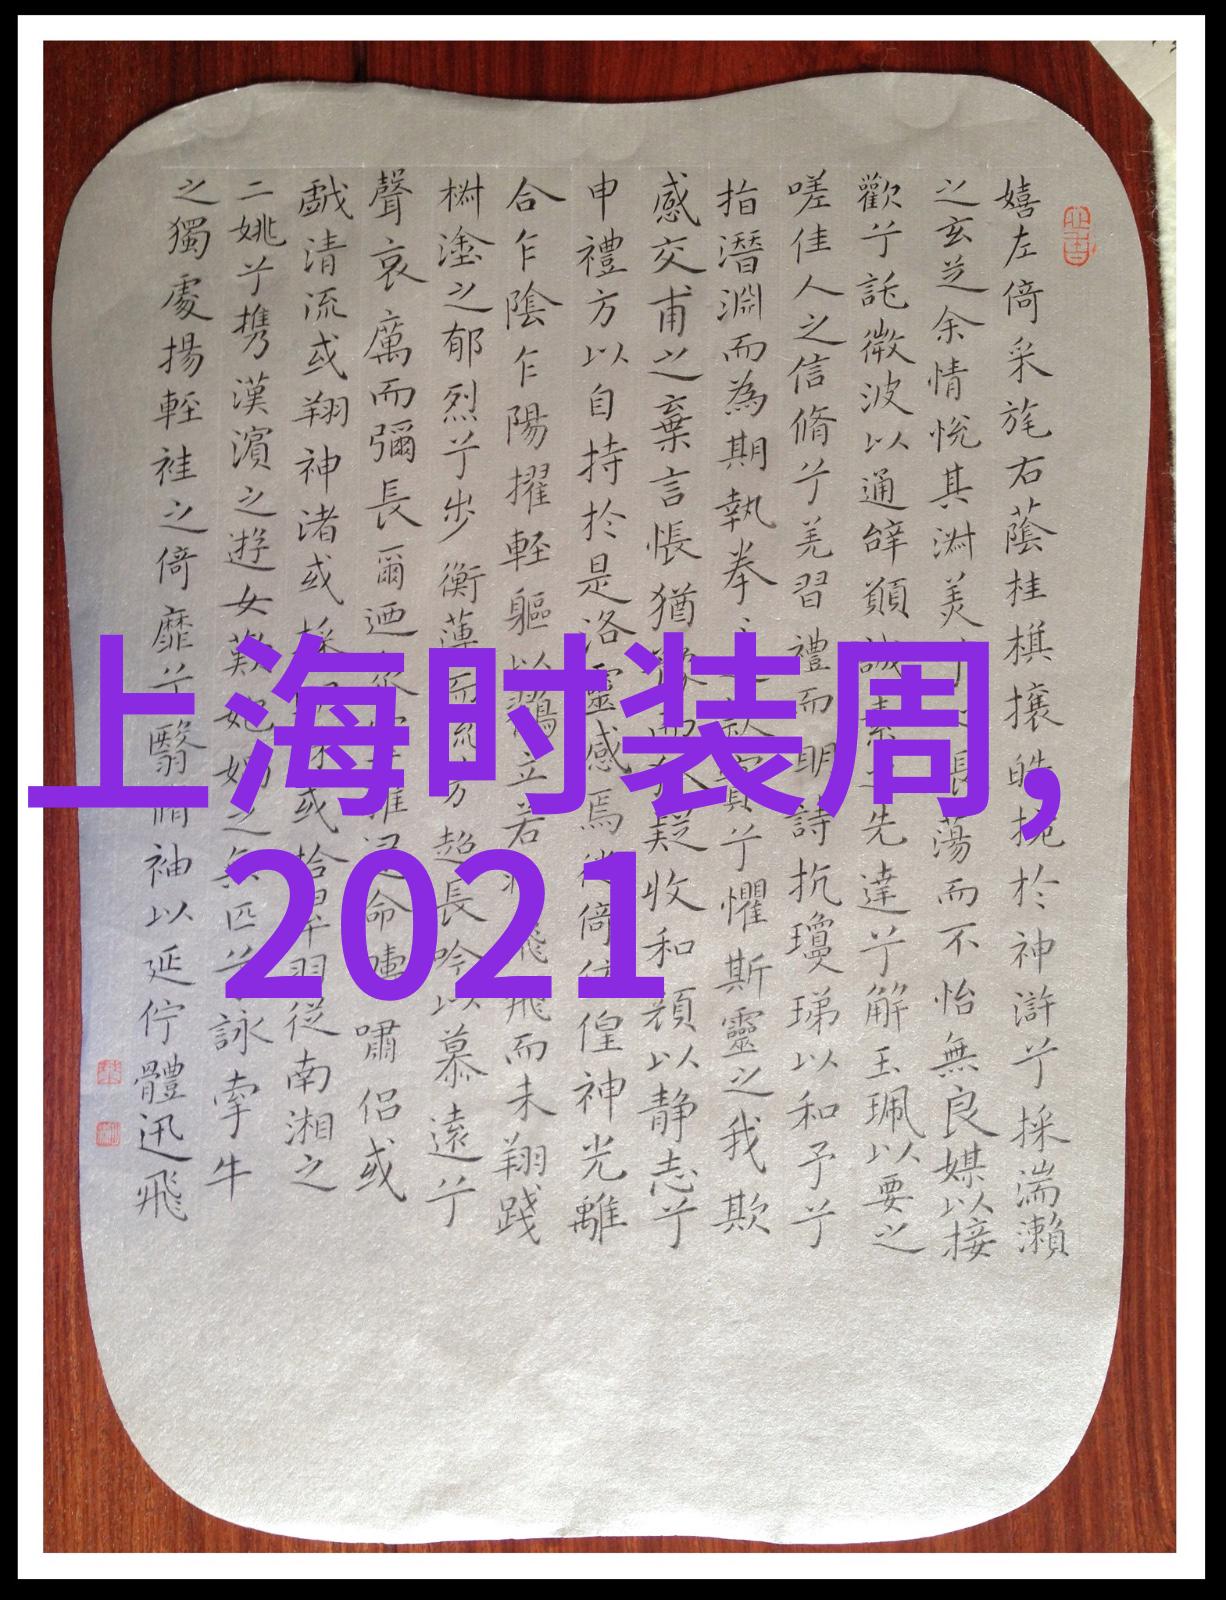 嬉左倚采旄右蔭桂棋攘皓捥於神滸兮採湍瀨
之玄芝余情悅其淑美兮振蕩而不怡無良媒以接
歡兮託微波以通辭願誠素先達兮解玉珮以要之
嗟佳人之信脩兮羌習禮而明詩抗瓊珶以和予兮
指潛淵而為期執拳之款實兮懼斯靈之我欺
感交甫之棄言悵猶豫而狐疑收和顏以静志兮
申禮方以自持於是洛靈感焉徙倚彷徨神光離
合乍陰乍陽擢輕軀以鶴立若飛而未翔踐
椒塗之郁烈兮步衡薄而流芳超長吟以慕遠兮
聲哀厲而彌長爾迺命疇嘯侶或
戲清流或翔神渚或採或拾翠羽從南湘之
二姚兮携漢濱之遊女歎匏媧之無匹兮詠牽牛
之獨處揚輕袿之倚靡兮翳脩袖以延佇體迅飛
上海时装周,
2021